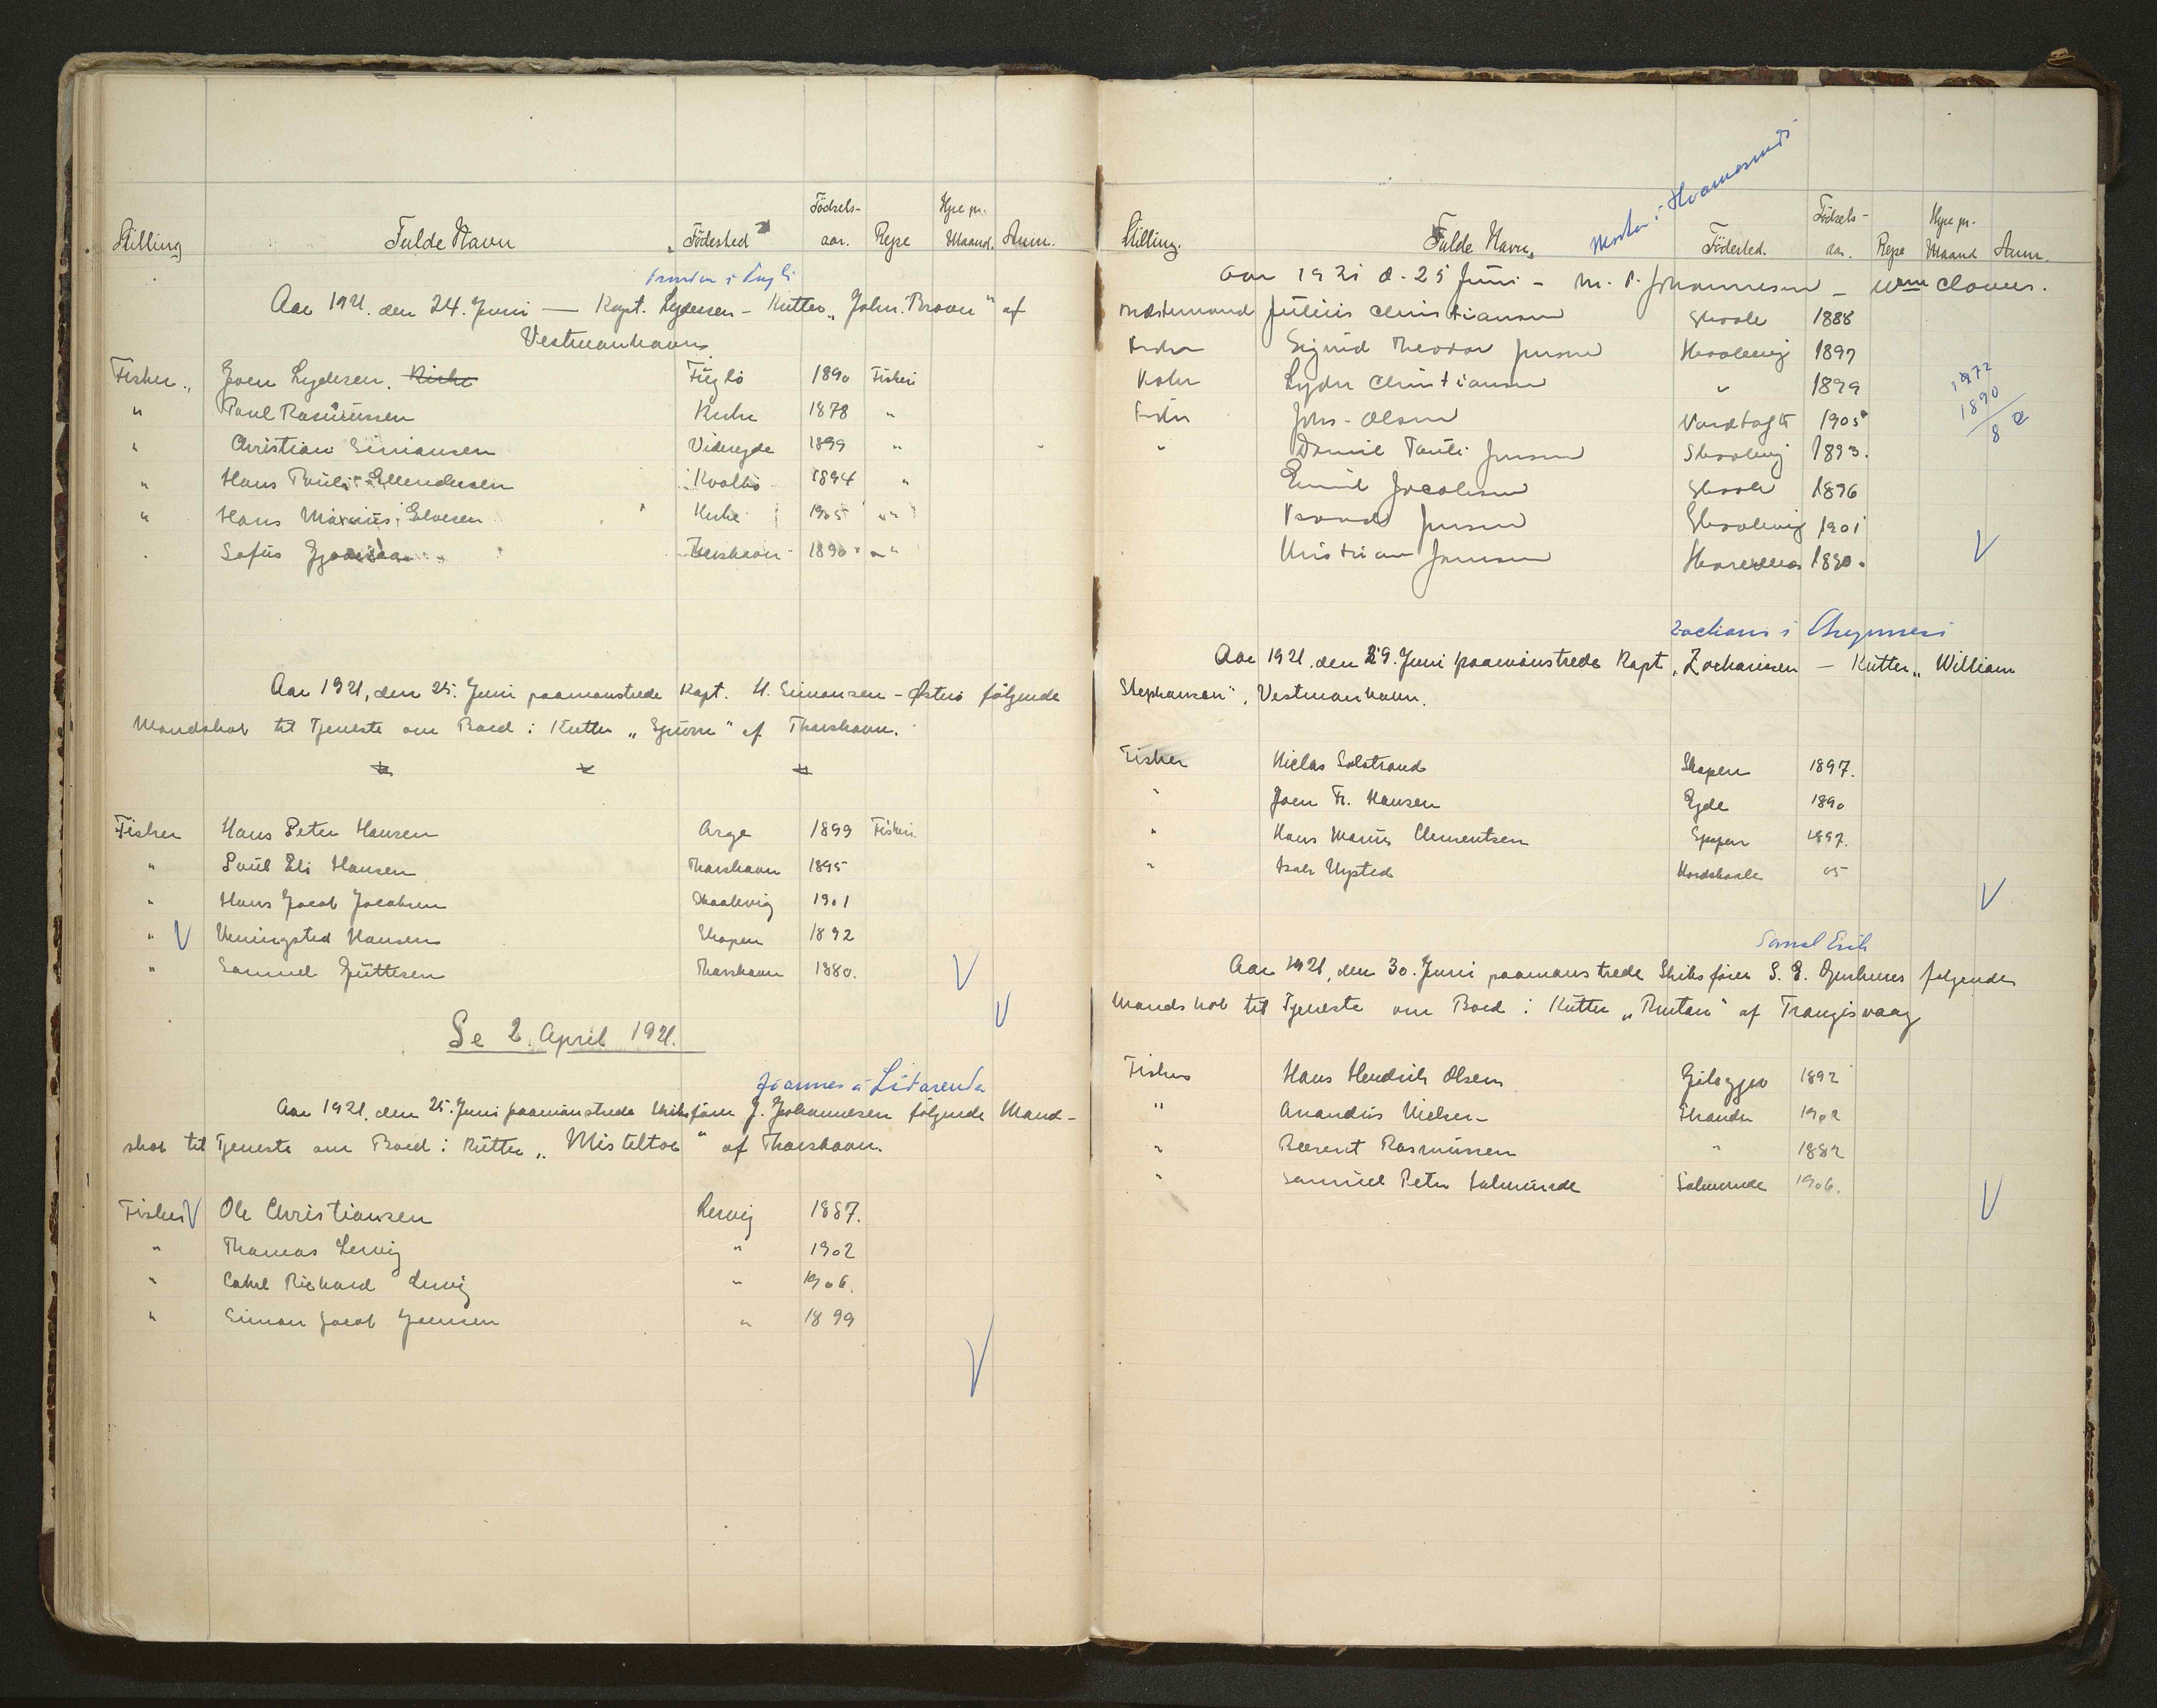 Stilling Fulde Navn Födested Födsels-aar. Rejse Hyre pr. Maand. Anm.
i Fugli
Aar 1921. den 24. Juni — Kapt. Lydersen - Kutter „John Brown" af
Vestmanhavn
Fisker „ Joen Lydersen. Kirke Fuglö 1890 Fiskeri
" Poul Rasmussen Kirke 1878 "
" Christian Simonsen Videreyde 1899 "
" Hans Pauli Ellendersen Kvalbö 1894 "
" Hans Marius Elvesen Kirke 1905 "
Sofus Thorshavn 1890 "
Aar 1921, den 25. Juni paamönstrede Kapt. H. Simonsen - Österö fölgende
Mandskab til Tjeneste om Bord i Kutter „ " af Thorshavn.
Fisker Hans Peter Hansen Arge 1899 Fiskeri
" Poul Eli Hansen Thorshavn 1895
" Hans Jacob Jacobsen Skaalevig 1901
" V Henningsted Hansen Skopen 1892
" Samuel Guttesen Thorshavn 1880. V
V
Se 2. April 1921.
Joannes á Lidarenda
Aar 1921. den 25. Juni paamönstrede Skibsförer J. Johannesen fölgende Mand-
skab til Tjeneste om Bord i Kutter „Misteltoe" af Thorshavn.
Fisker V Ole Christiansen Lervig 1887.
" Thomas Lervig " 1902
" Richard Lervig " 1906.
" Simon Jacob Joensen " 1899
V
Stilling. Fulde Navn Födested. Födsels-aar. Rejse Hyre pr. Maand Anm.
i Hvannasund
Aar 1921 d. 25 Juni - M. P. Johannesen - Wm Clowes.
Bedstemand Julius Christiansen Skaale 1888
Fisker Sigurd Theodor Jensen 1897
Kokk Lyder Christiansen " 1899
Fisker Johs. Olsen 1905
" Daniel Pauli Jensen Skaalevig 1893.
Emil Jacobsen Skaale 1896
Jensen Skaalevig 1901
Kristian Joensen 1890.
1972
1890
82
V
i
Aar 1921. den 29. Juni paamönstrede Kapt. Zachariasen — Kutter „William
Stephenson", Vestmanhavn.
Fisker Niclas Solstrand Skopen 1897.
" Joen Fr. Hansen Ejde 1890
" Hans Marius Clementsen 1897.
" Isak Nysted Nordskaale 05
V
Samal Erik
Aar 1921, den 30. Juni paamönstrede Skibsförer S. E. fölgende
Mandskab til Tjeneste om Bord i Kutter „ " af Trangisvaag
Fisker Hans Hendrik Olsen 1892
" Anandus Nielsen 1902
" Berent Rasmussen " 1882
" Samuel Peter Sulmunde 1906.
V